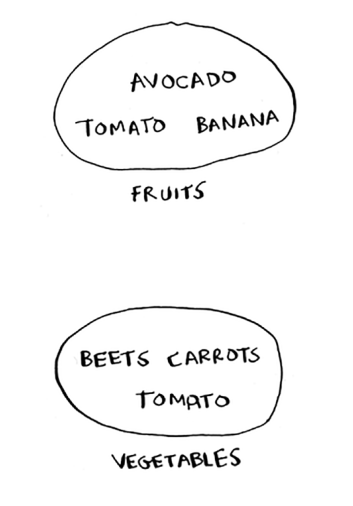 AVOCADO
TOMATO BANANA
FRUITS
BEETS CARROTS
TOMATO
VEGETABLES